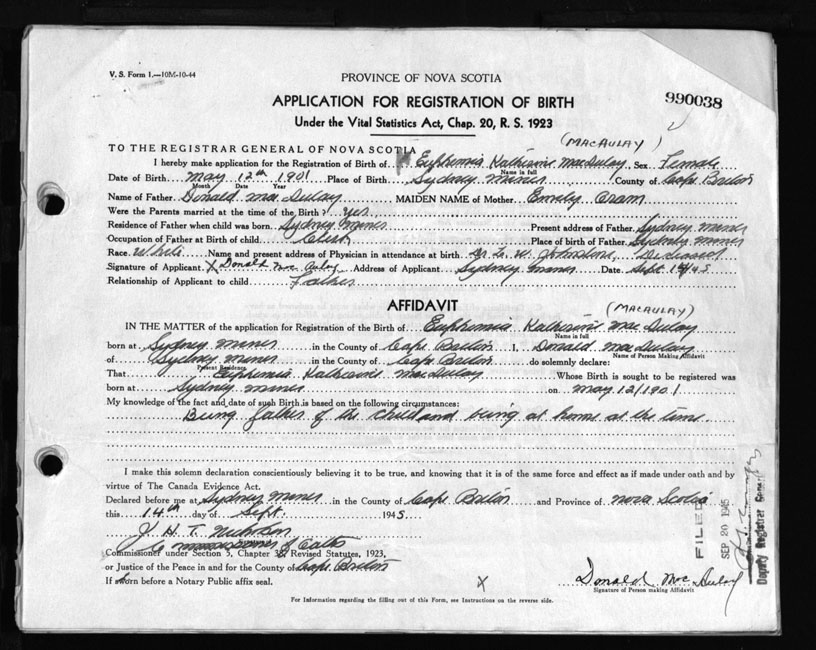 V. S. Form 1.—10M-10-44
PROVINCE OF NOVA SCOTIA
990038
APPLICATION FOR REGISTRATION OF BIRTH
Under the Vital Statistics Act, Chap. 20, R. S. 1923
(MACAULAY)
TO THE REGISTRAR GENERAL OF NOVA SCOTIA
I hereby make application for the Registration of Birth of Euphemia Katherine MacAulay Sex Female
Name in full
Date of Birth May 12th 1901 Place of Birth Sydney Mines County of Cape Breton
Month Date Year
Name of Father Donald MacAulay MAIDEN NAME of Mother Emily Oram
Were the Parents married at the time of the Birth? yes
Residence of Father when child was born Sydney Mines Present address of Father Sydney Mines
Occupation of Father at Birth of child Clerk Place of birth of Father Sydney Mines
Race White Name and present address of Physician in attendance at birth Dr. L. W. Johnstone, Deceased
Signature of Applicant X Donald MacAulay Address of Applicant Sydney Mines Date Sept 14/45
Relationship of Applicant to child Father
AFFIDAVIT
(MACAULAY)
IN THE MATTER of the application for Registration of the Birth of Euphemia Katherine MacAulay
Name in full
born at Sydney Mines in the County of Cape Breton I, Donald MacAulay
Name of Person Making Affidavit
of Sydney Mines in the County of Cape Breton do solemnly declare:
Present Residence
That Euphemia Katherine MacAulay Whose Birth is sought to be registered was
born at Sydney Mines on May 12/1901
My knowledge of the fact and date of such Birth is based on the following circumstances:
Being father of the child and being at home at the time.
I make this solemn declaration conscientiously believing it to be true, and knowing that it is of the same force and effect as if made under oath and by
virtue of The Canada Evidence Act.
Declared before me at Sydney Mines in the County of Cape Breton and Province of Nova Scotia
this 14th day of Sept. 1945
J. H. T. Nicholson
Commissioner under Section 5, Chapter 38, Revised Statutes, 1923,
or Justice of the Peace in and for the County of Cape Breton
If sworn before a Notary Public affix seal.
X Donald MacAulay
Signature of Person making Affidavit
For Information regarding the filling out of this Form, see Instructions on the reverse side.
FILED
SEP 20 1945
Deputy Registrar General